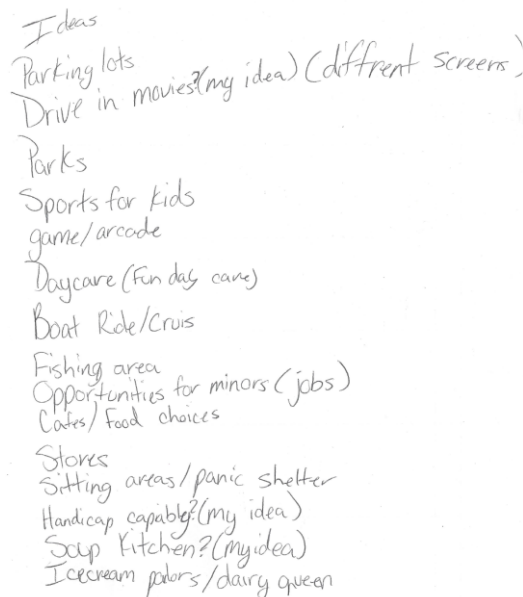 Ideas
Parking lots
Drive in movies?(my idea)(diffrent screens)
Parks
Sports for kids
game/arcade
Daycare(Fun day care)
Boat Ride/Cruis
Fishing area
Opportunities for minors(jobs)
Cafes/Food choices
Stores
Sitting areas/panic shelter
Handicap capably?(my idea)
Soup Kitchen?(my idea)
Icecream palors/dairy queen